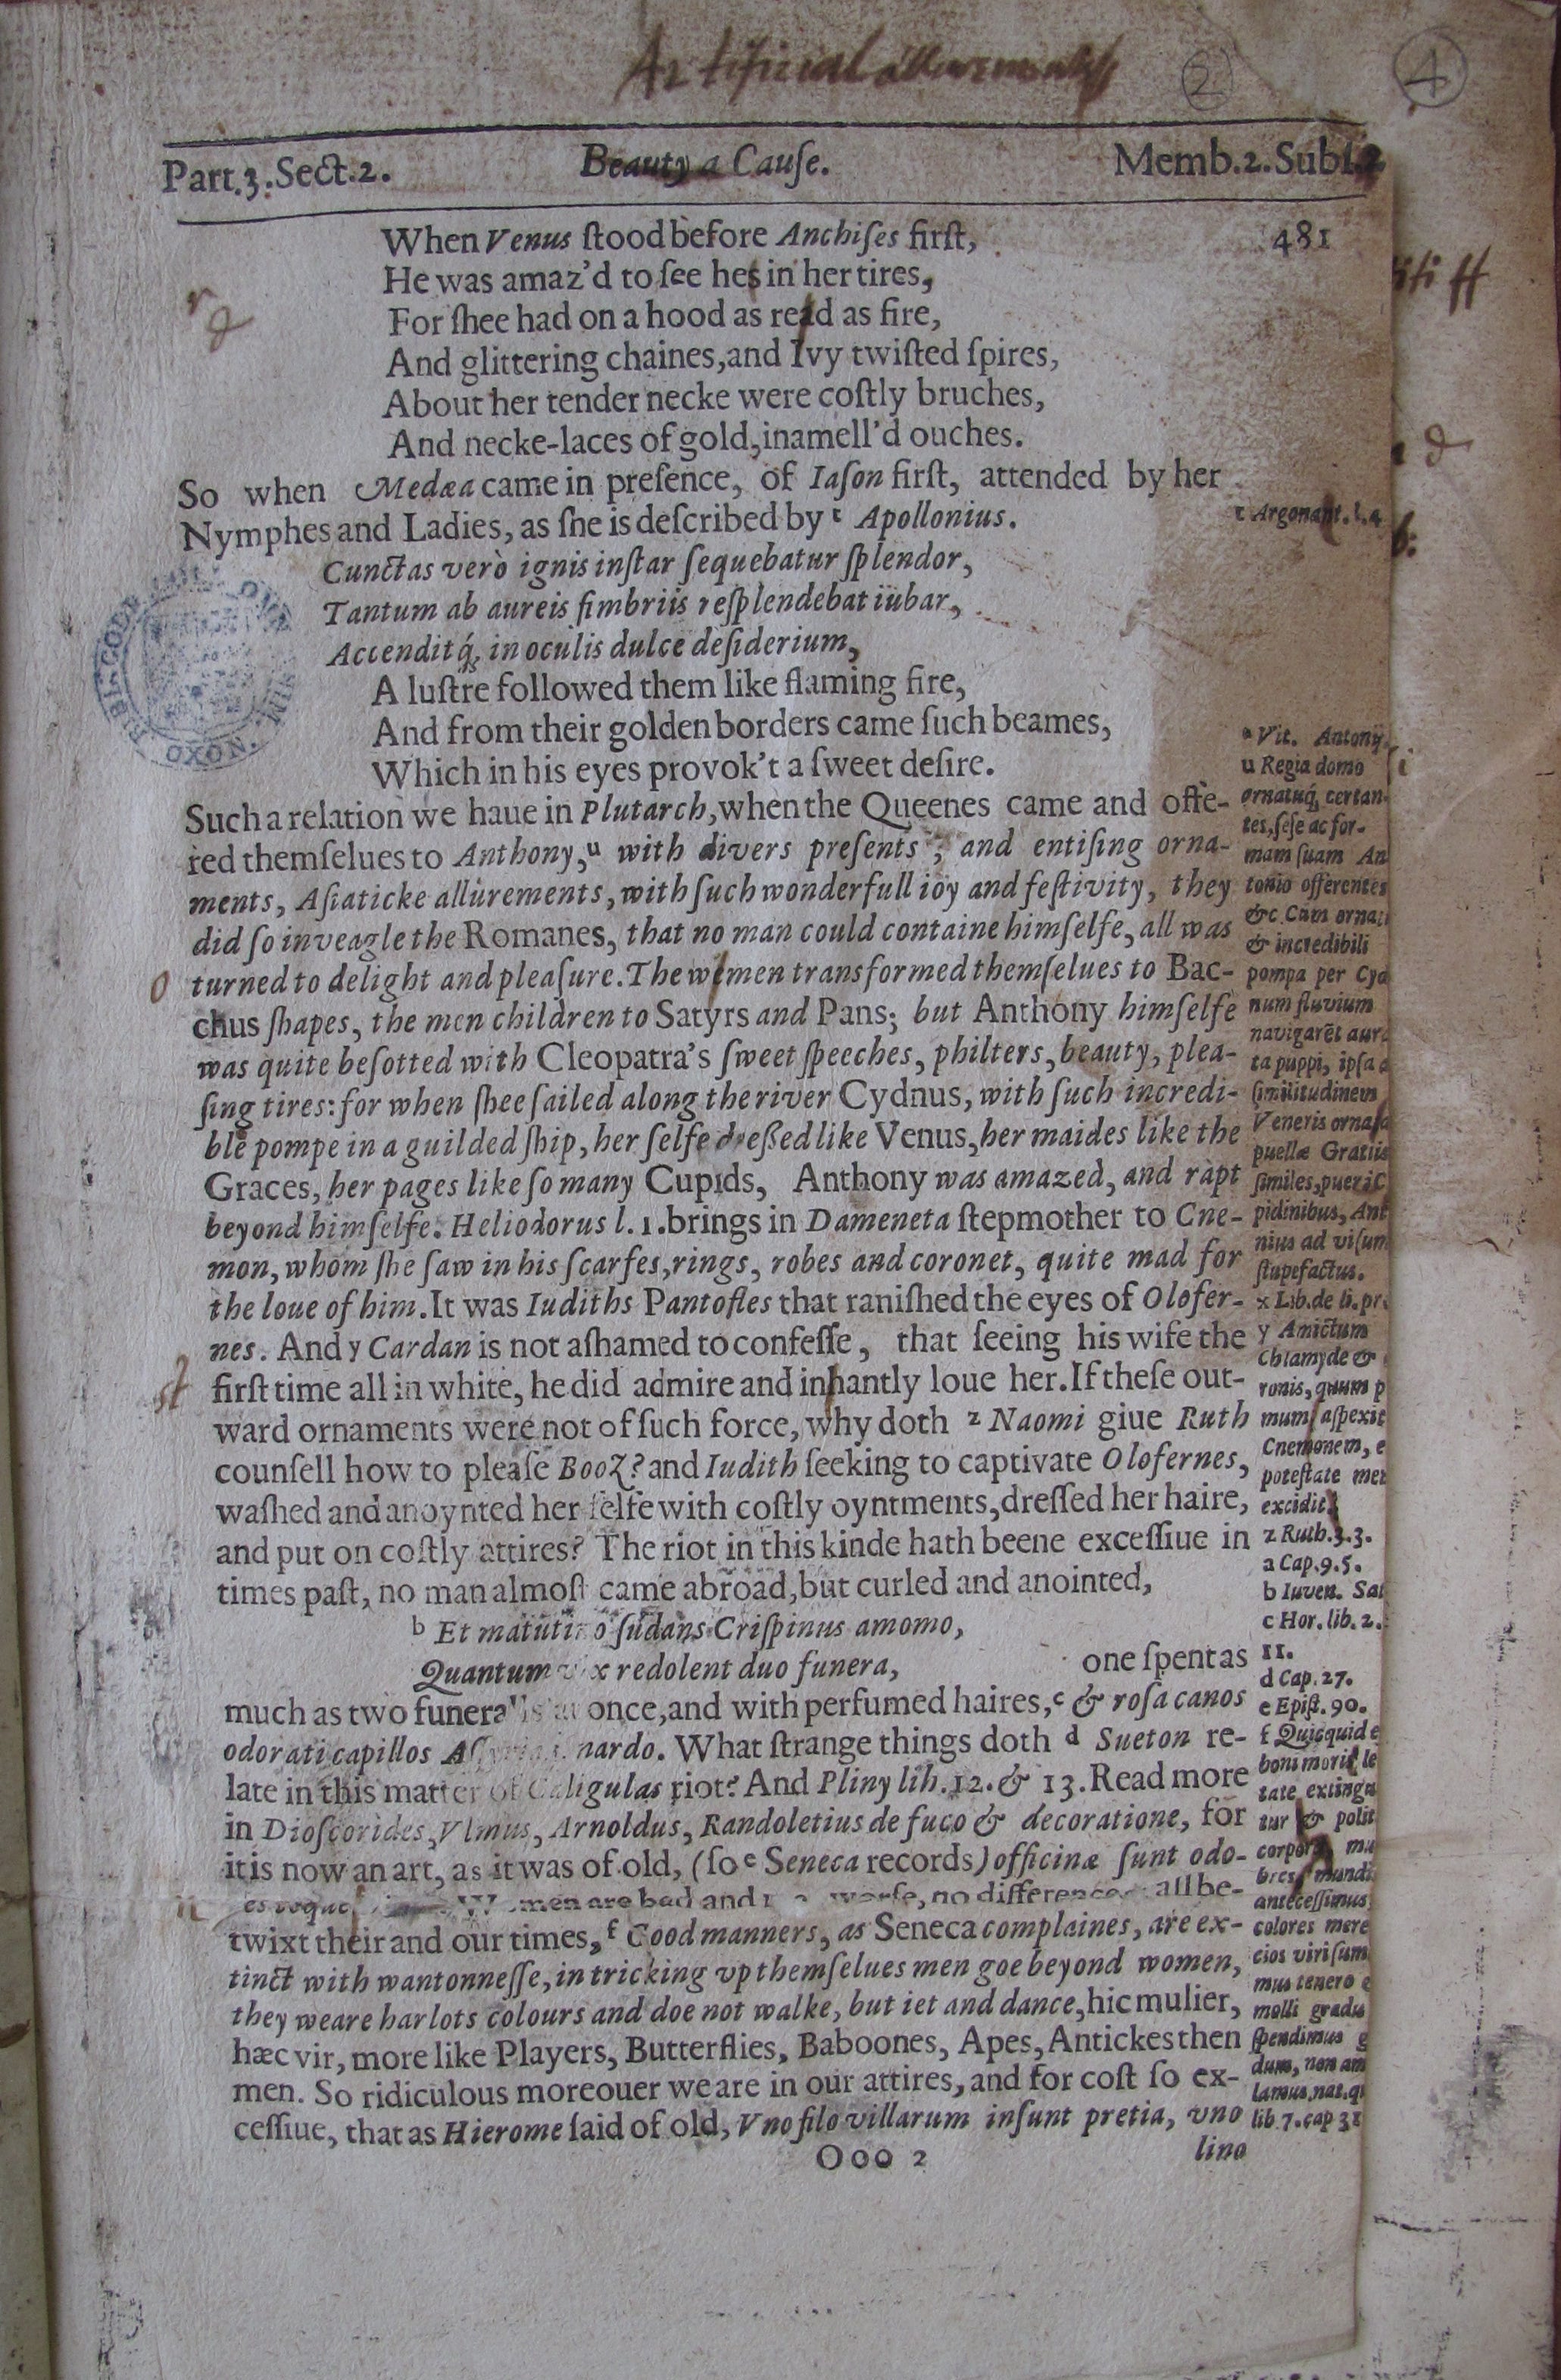 Artificial allurements
2
4
Part.3.Sect.2. Beauty a Cauſe. Memb.2.Subſ.2
481
When Venus ſtood before Anchiſes firſt,
He was amaz'd to ſee hes in her tires,
For ſhee had on a hood as read as fire,
And glittering chaines,and Ivy twiſted ſpires,
About her tender necke were coſtly bruches,
And necke-laces of gold,inamell'd ouches.
So when Medæa came in preſence, of Iaſon firſt, attended by her
Nymphes and Ladies, as ſhe is deſcribed by t Apollonius.
Cunctas verò ignis inſtar ſequebatur ſplendor,
Tantum ab aureis fimbriis reſplendebat iubar,
Accenditq́; in oculis dulce deſiderium,
A luſtre followed them like flaming fire,
And from their golden borders came ſuch beames,
Which in his eyes provok't a ſweet deſire.
Such a relation we haue in Plutarch,when the Queenes came and offe-
red themſelues to Anthony,u with divers preſents, and entiſing orna-
ments, Aſiaticke allurements, with ſuch wonderfull ioy and feſtivity, they
did ſo inveagle the Romanes, that no man could containe himſelfe, all was
turned to delight and pleaſure.The wemen transformed themſelues to Bac-
chus ſhapes, the men children to Satyrs and Pans; but Anthony himſelfe
was quite beſotted with Cleopatra's ſweet ſpeeches, philters, beauty, plea-
ſing tires:for when ſhee ſailed along the river Cydnus, with ſuch incredi-
ble pompe in a guilded ſhip, her ſelfe dreſſed like Venus,her maides like the
Graces, her pages like ſo many Cupids, Anthony was amazed, and rapt
beyond himſelfe. Heliodorus l. 1.brings in Dameneta ſtepmother to Cne-
mon, whom ſhe ſaw in his ſcarfes,rings, robes and coronet, quite mad for
the loue of him.It was Iudiths Pantofles that raniſhed the eyes of Olofer-
nes. And y Cardan is not aſhamed to confeſſe, that ſeeing his wife the
firſt time all in white, he did admire and inhantly loue her.If theſe out-
ward ornaments were not of ſuch force, why doth z Naomi giue Ruth
counſell how to pleaſe Booz? and Iudith ſeeking to captivate Olofernes,
waſhed and anoynted her ſelfe with coſtly oyntments,dreſſed her haire,
and put on coſtly attires? The riot in this kinde hath beene exceſſiue in
times paſt, no man almoſt came abroad,but curled and anointed,
b Et matutino ſudans Criſpinus amomo,
Quantum vix redolent duo funera, one ſpent as
much as two funeralls at once,and with perfumed haires,c & roſa canos
odorati capillos Aſſyriaq. nardo. What ſtrange things doth d Sueton re-
late in this matter of Caligulas riot? And Pliny lib.12.& 13.Read more
in Dioſcorides,Vlmus, Arnoldus, Randoletius de fuco & decoratione, for
it is now an art, as it was of old, (ſo e Seneca records) officinæ ſunt odo-
men are bad and worſe, no difference all be-
twixt their and our times, f Good manners, as Seneca complaines, are ex-
tinct with wantonneſſe,in tricking vp themſelues men goe beyond women,
they weare harlots colours and doe not walke, but iet and dance,hic mulier,
hæc vir, more like Players, Butterflies, Baboones, Apes, Antickes then
men. So ridiculous moreouer we are in our attires, and for coſt ſo ex-
ceſſiue, that as Hierome ſaid of old, Vno filo villarum inſunt pretia, vno
Ooo 2 lino
t Argonaut.l.4
a Vit. Antonij
u Regia domo
ornatuq́; certan-
tes,ſeſe ac for-
mam ſuam An
tonio offerentes
&c.Cum ornatu
& incredibili
pompa per Cyd
num fluvium
navigarēt aura
ta puppi, ipſa a
ſimilitudinem
Veneris ornata
puellæ Gratiis
ſimiles,pueri C
pidinibus, Ant
nius ad viſum
ſtupefactus.
x Lib.de li.pr
y Amictum
Chlamyde &
ronis, quum p
mum aſpexit
Cnemonem, e
poteſtate men
excidit.
z Ruth.3.3.
a Cap.9.5.
b Iuven. Sat
c Hor. lib. 2.
11.
d Cap. 27.
e Epiſt. 90.
f Quicquid e
boni moris le
tate extingu
tur & polit
corporis mu
bres mundi
anteceſſimus
colores mere
cios viri ſum
mus tenero e
molli gradu
ſpendimus g
dum, non am
lamus,nat.q
lib.7.cap 31
r
o
ſt
BIBL. COLL.
OXON.